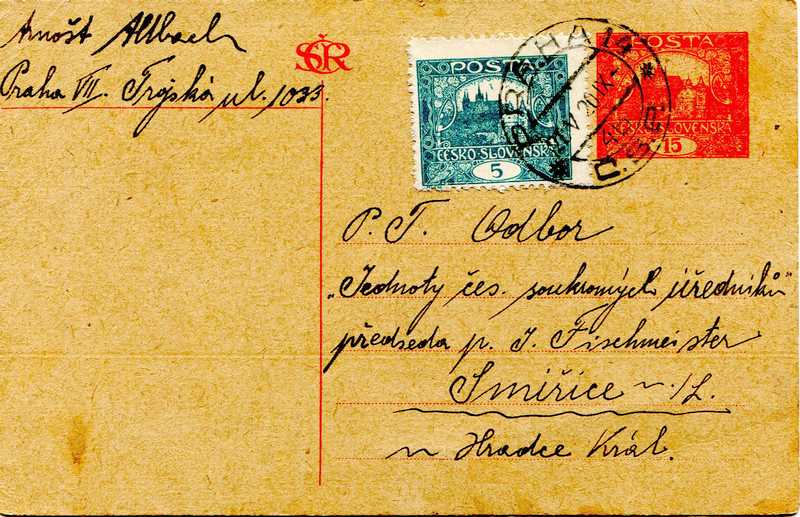 Arnošt Altbach
Praha VII. Trojská ul. 1033.
ČSR
POŠTA
ČESKO-SLOVENSKÁ
5
PRAHA 14
Č.S.P.
POŠTA
ČESKO-SLOVENSKÁ
15
P. T. Odbor
„Jednoty čes. soukromých úředníků"
předseda p. J. Fischmeister
Smiřice n./L.
u Hradce Král.